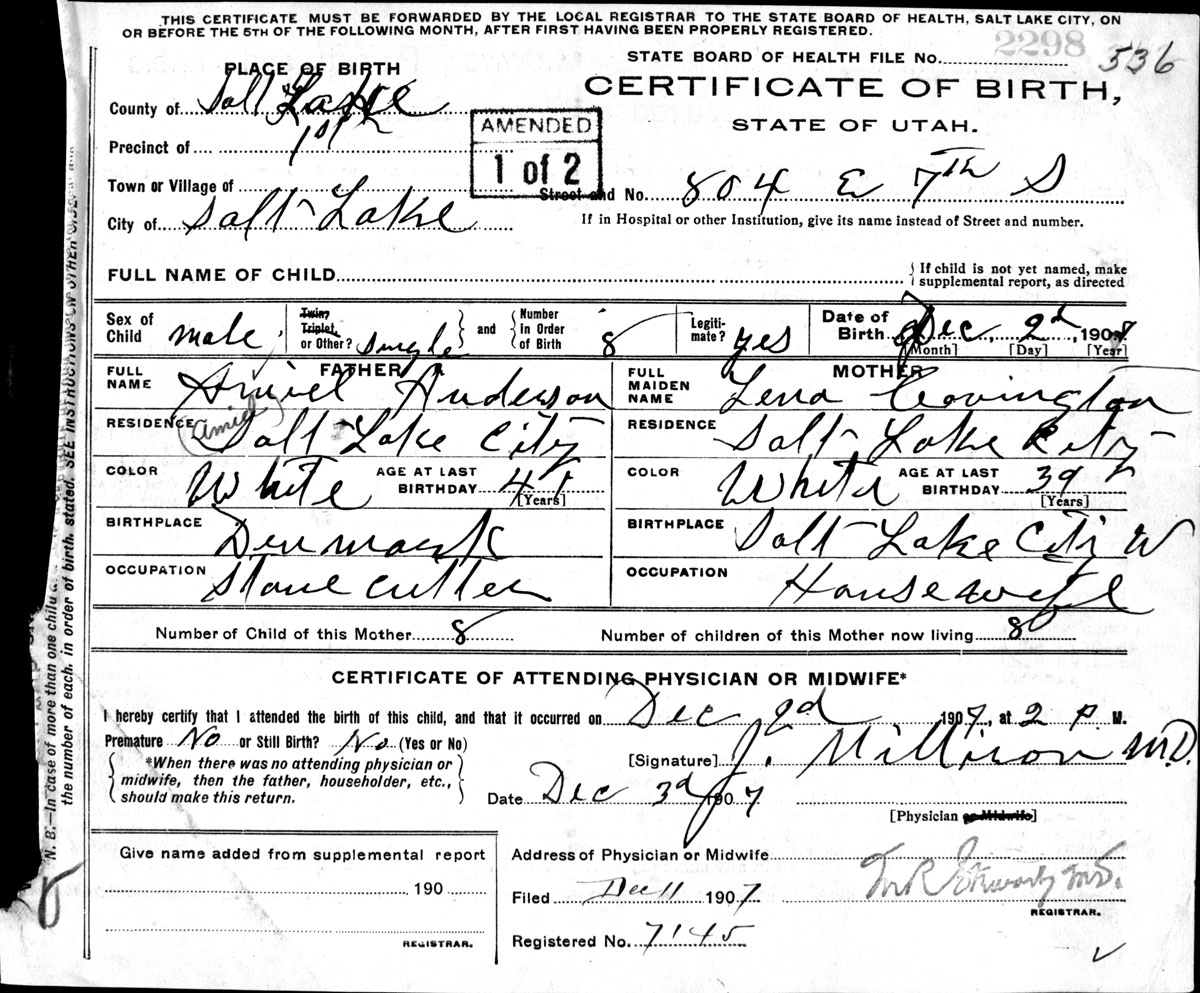 THIS CERTIFICATE MUST BE FORWARDED BY THE LOCAL REGISTRAR TO THE STATE BOARD OF HEALTH, SALT LAKE CITY, ON
OR BEFORE THE 5TH OF THE FOLLOWING MONTH, AFTER FIRST HAVING BEEN PROPERLY REGISTERED.
2298
STATE BOARD OF HEALTH FILE No. 536
PLACE OF BIRTH
CERTIFICATE OF BIRTH,
STATE OF UTAH.
County of Salt Lake
Precinct of 1st
AMENDED
1 of 2
Town or Village of
Street and No. 804 E 7th S
City of Salt Lake
If in Hospital or other Institution, give its name instead of Street and number.
FULL NAME OF CHILD
If child is not yet named, make
supplemental report, as directed
Sex of Child male
Twin, Triplet, or Other? single
and Number In Order of Birth 8
Legiti-mate? yes
Date of Birth Dec 2d, 1907
[Month] [Day] [Year]
FATHER
FULL NAME Amiel Anderson
(Amiel)
RESIDENCE Salt Lake City
COLOR White AGE AT LAST BIRTHDAY 41 [Years]
BIRTHPLACE Denmark
OCCUPATION Stone cutter
MOTHER
FULL MAIDEN NAME Lena Covington
RESIDENCE Salt Lake City
COLOR White AGE AT LAST BIRTHDAY 39 [Years]
BIRTHPLACE Salt Lake City
OCCUPATION Housewife
Number of Child of this Mother 8
Number of children of this Mother now living 8
CERTIFICATE OF ATTENDING PHYSICIAN OR MIDWIFE*
I hereby certify that I attended the birth of this child, and that it occurred on Dec 2d 1907, at 2 P. M.
Premature No or Still Birth? No (Yes or No)
*When there was no attending physician or
midwife, then the father, householder, etc.,
should make this return.
[Signature] J. Millison M.D.
Date Dec 3d 1907
[Physician or Midwife]
Give name added from supplemental report
190
REGISTRAR.
Address of Physician or Midwife
Filed Dec 11 1907
M.D.
REGISTRAR.
Registered No. 7145
N. B.—In case of more than one child
the number of each, in order of birth, stated. SEE INSTRUCTIONS ON OTHER SIDE.